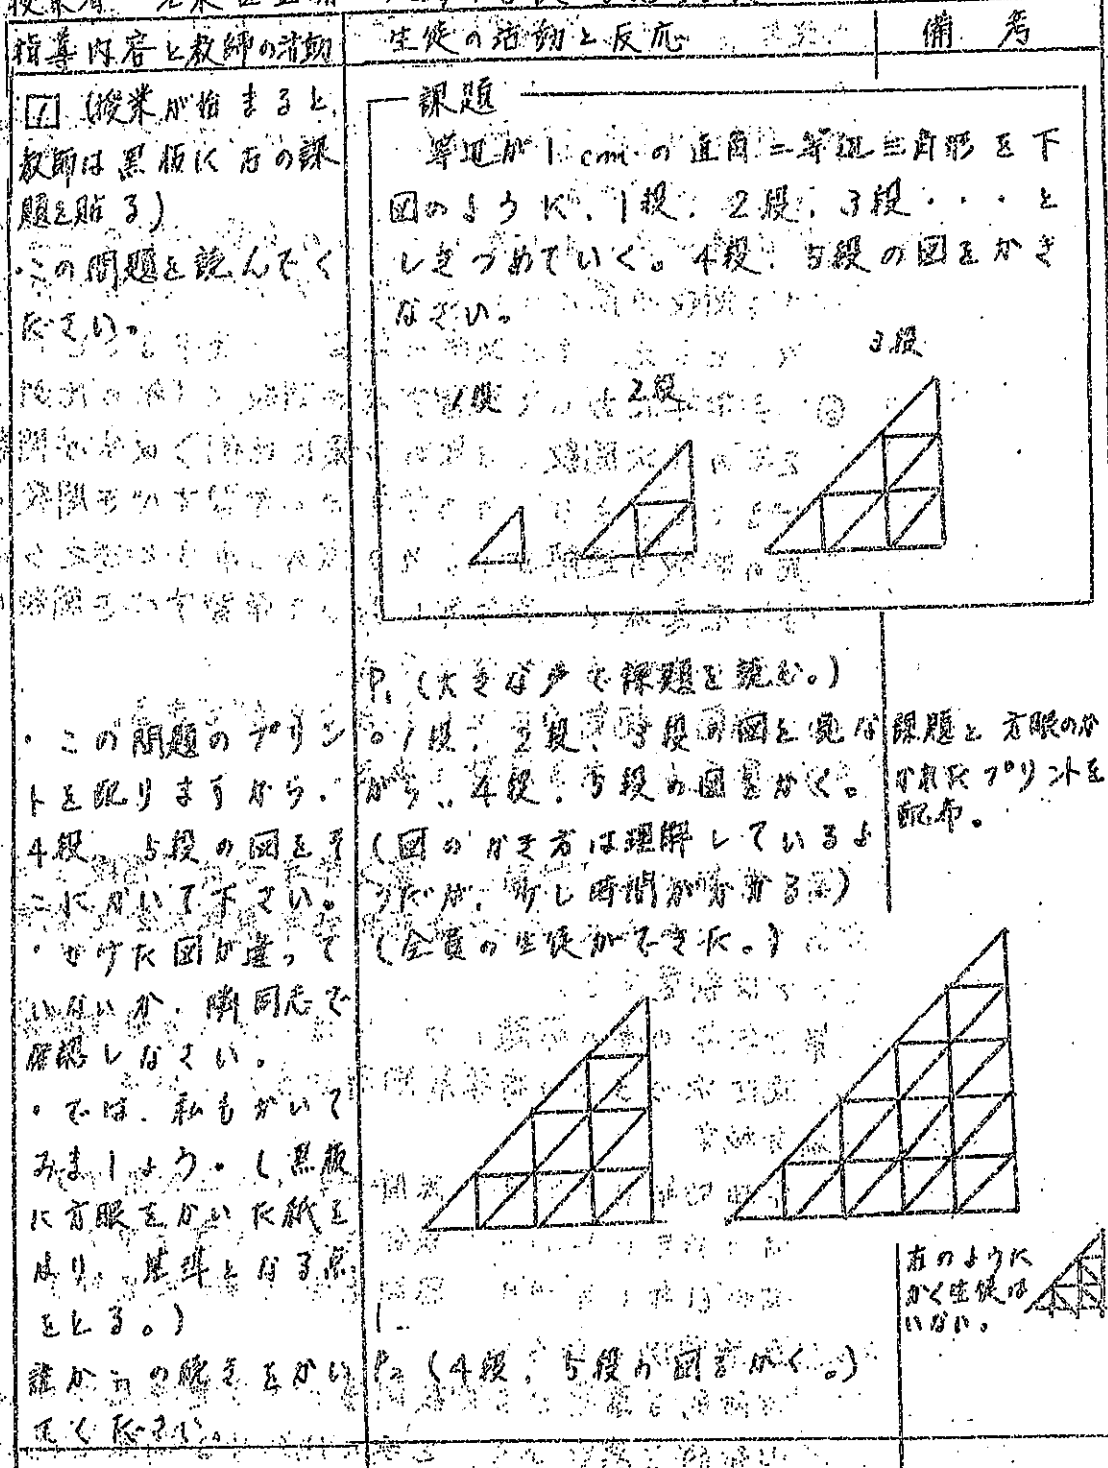 指導内容と教師の活動
生徒の活動と反応
備考
1 (授業が始まると、
教師は黒板に右の課
題を貼る)
・この問題を読んでく
ださい。
課題
等辺が1cmの直角二等辺三角形を下
図のように、1段、2段、3段・・・と
しきつめていく。4段、5段の図をかき
なさい。
1段
2段
3段
P₁ (大きな声で課題を読む。)
・この問題のプリン
トを配りますから、
4段、5段の図をそ
こにかいて下さい。
・かけた図が違って
いないか、隣同志で
確認しなさい。
・では、私もかいて
みましょう。(黒板
に方眼をかいた紙を
はり、基準となる点
をとる。)
誰かこの続きをかい
てください。
○1段、2段、3段の図を見な
がら、4段、5段の図をかく。
(図のかき方は理解しているよ
うだが、少し時間がかかる。)
(全員の生徒ができた。)
P₂ (4段、5段の図をかく。)
課題と方眼のか
かれたプリントを
配布。
右のように
かく生徒は
いない。